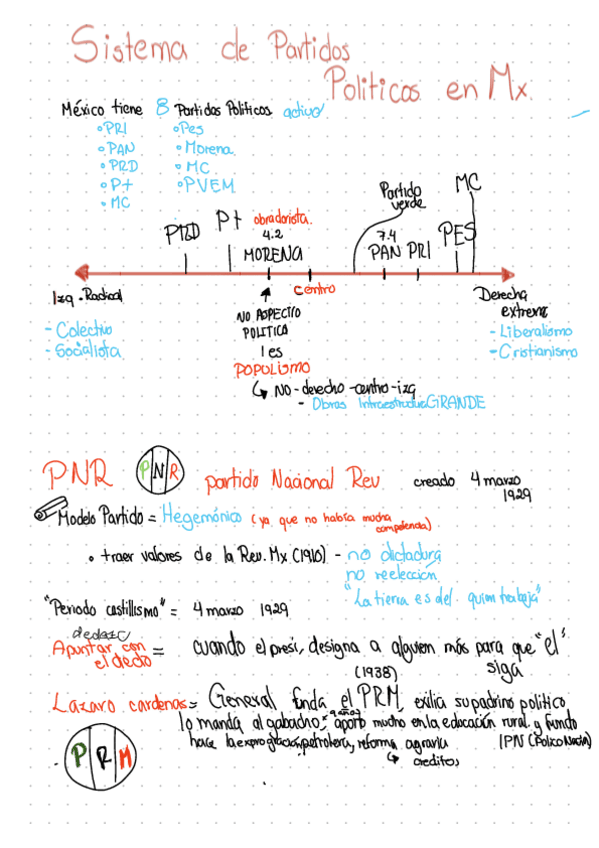 Sistema de Partidos
Politicos en Mx
México tiene 8 Partidos Politicos activo/
• PRI
• PAN
• PRD
• Pt
• MC
• Pes
• Morena
• MC
• PVEM
PRD
Pt
obradorista.
4.2
MORENA
Partido
verde
7.4
PAN PRI
PES
MC
Izq. Radical
centro
Derecha
extrema
- Colectivo
- Socialista
- Liberalismo
- Cristianismo
NO ASPECTO
POLITICO
1 es
POPOLISMO
↳ NO-derecho-centro-izq
- Obras GRANDE
PNR PNR partido Nacional Rev creado 4 marzo
1929
Modelo Partido = Hegemónico (ya que no había mucha
competencia)
• traer valores de la Rev. Mx (1910) - no dictadura
no reelección
"La tierra es del quim trabaja"
"Periodo castillismo" = 4 marzo 1929
dedazo
Apuntar con = cuando el presi, designa a alguien más para que "el"
el dedo siga
(1938)
Lazaro cardenas = General funda el PRM, exilia su padrino politico
lo manda al gabacho, 9 años aporto mucho en la educación rural y fundo
hace la petrolera, reforma agraria IPN
↳ creditos
PRM